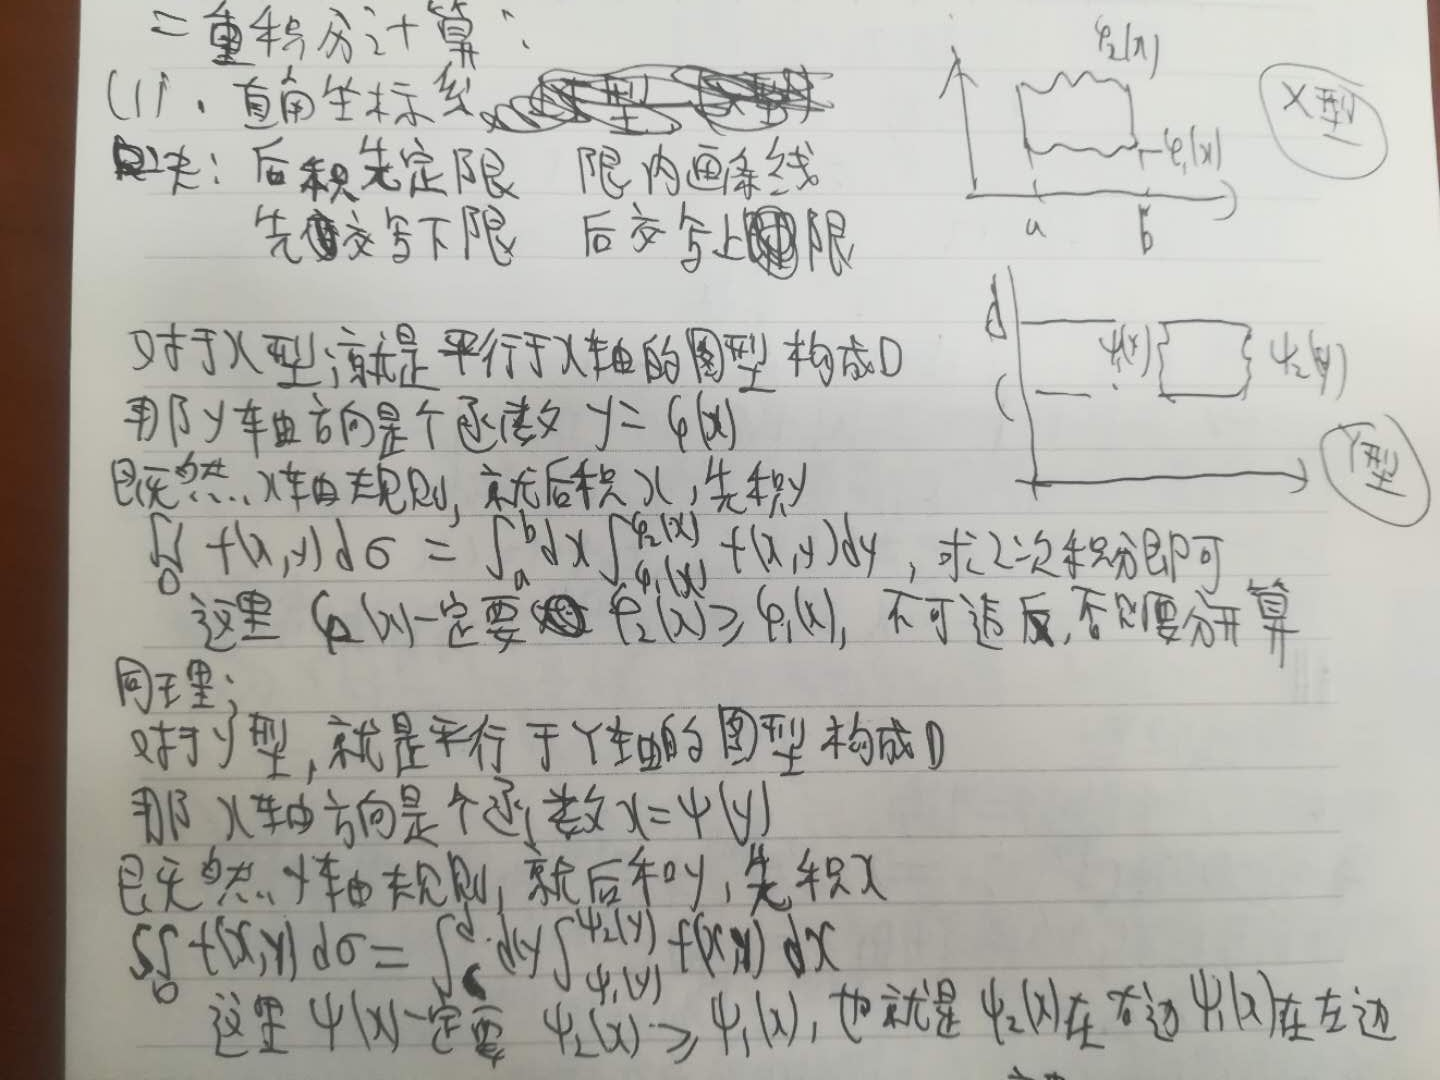 二重积分计算:
(1)、直角坐标系
口诀: 后积先定限 限内画条线
先交写下限 后交写上限
对于X型,就是平行于X轴的图型构成D
那Y轴方向是个函数 y=φ(x)
既然X轴规则,就后积x,先积y
∬_D f(x,y)dσ = ∫_a^b dx ∫_{φ₁(x)}^{φ₂(x)} f(x,y)dy ,求2次积分即可
这里 φ₂(x)一定要 φ₂(x)≥φ₁(x),不可造反,否则要分开算
同理:
对于y型,就是平行于Y轴的图型构成D
那X轴方向是个函数x=ψ(y)
既然y轴规则,就后积y,先积x
∬_D f(x,y)dσ = ∫_c^d dy ∫_{ψ₁(y)}^{ψ₂(y)} f(x,y) dx
这里ψ(x)一定要 ψ₂(x)≥ψ₁(x),也就是ψ₂(x)在右边ψ₁(x)在左边
φ₂(x)
X型
φ₁(x)
a b
d
ψ₁(y) ψ₂(y)
c
Y型